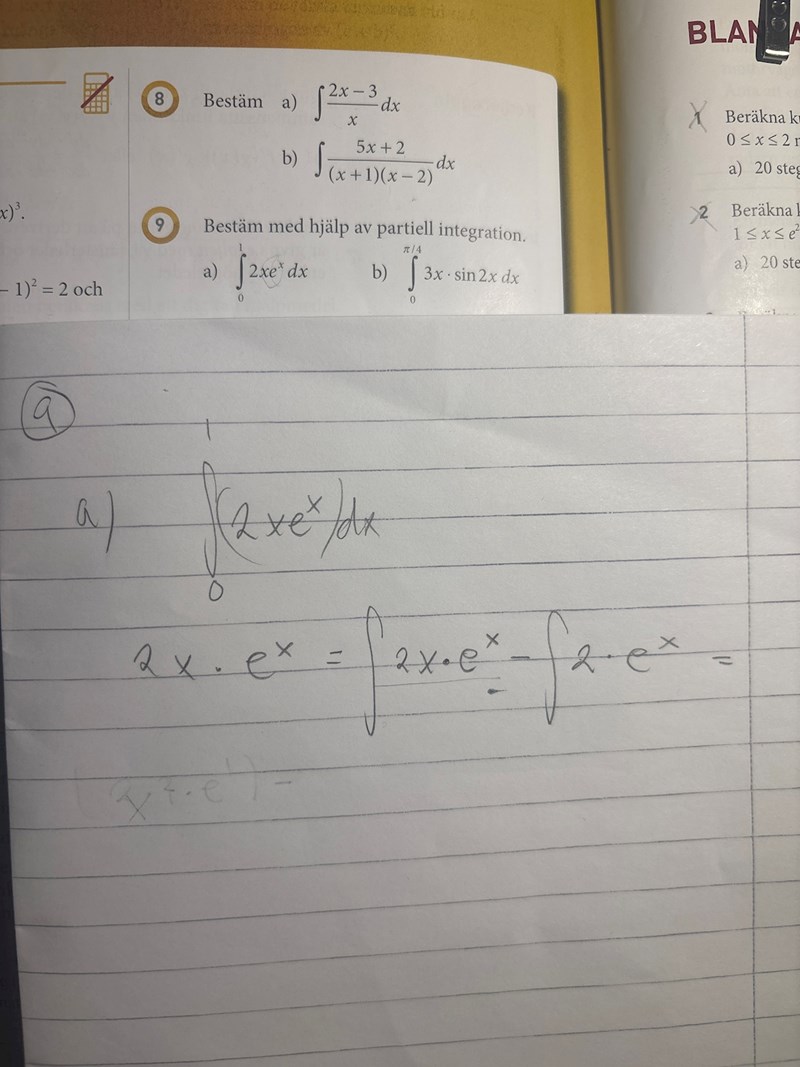 BLAN
8 Bestäm a) ∫ (2x − 3)/x dx
b) ∫ (5x + 2)/((x + 1)(x − 2)) dx
x)³.
− 1)² = 2 och
9 Bestäm med hjälp av partiell integration.
a) ∫₀¹ 2xeˣ dx b) ∫₀^(π/4) 3x · sin 2x dx
1 Beräkna
0 ≤ x ≤ 2
a) 20
2 Beräkna
1 ≤ x ≤ e²
a) 20
9
a) ∫₀¹ (2xeˣ)dx
2x · eˣ = ∫ 2x · eˣ − ∫ 2 · eˣ =